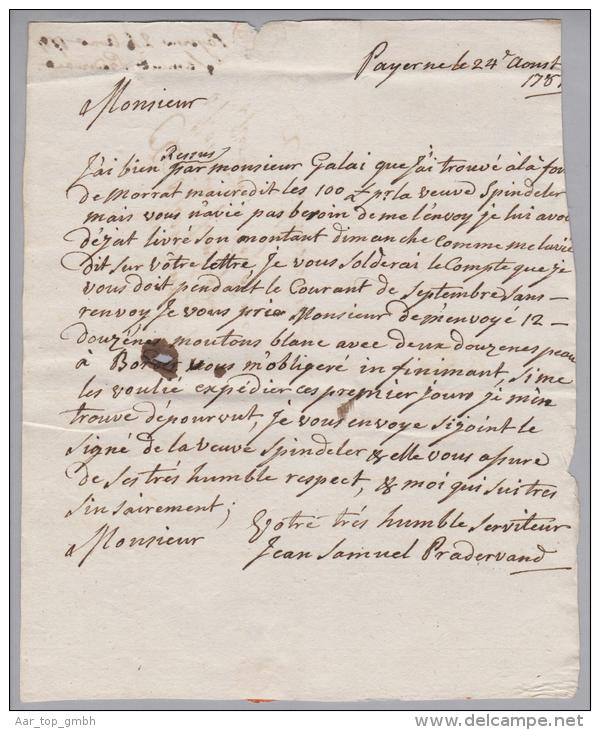 Payerne le 24e Aoust
178
Monsieur
J'ai bien Ressus par monsieur Galai que j'ai trouvé à là foi
de Morrat maicredit les 100 pr la veuve Spindeler
mais vous n'avié pas besoin de me l'envoy je lui avoi
déjat livré son montant dimanche comme me laviè
Dit sur vôtre lettre, Je vous solderai le Compte que je
vous doit pendant le Courant de Septembre, sans
renvoy Je vous prie Monsieur de m'envoyé 12
douzénes moutons blanc avec deux douzenes peau
à vous m'obligeré infinimant, si me
les voulié expédier ces premier jours je m'en
trouve dépourvut, Je vous envoye sijoint le
signé de la veuve Spindeler & elle vous assure
de ses trés humble respect, & moi qui suis tres
sinsairement;
Monsieur
Votre trés humble Serviteur
Jean Samuel Pradervand
Aar_top_gmbh
www.delcampe.net